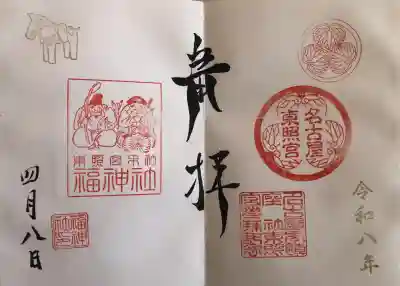 令和八年
奉拝
名古屋
東照宮
東照宮末社
福神社
四月八日
福神
社印